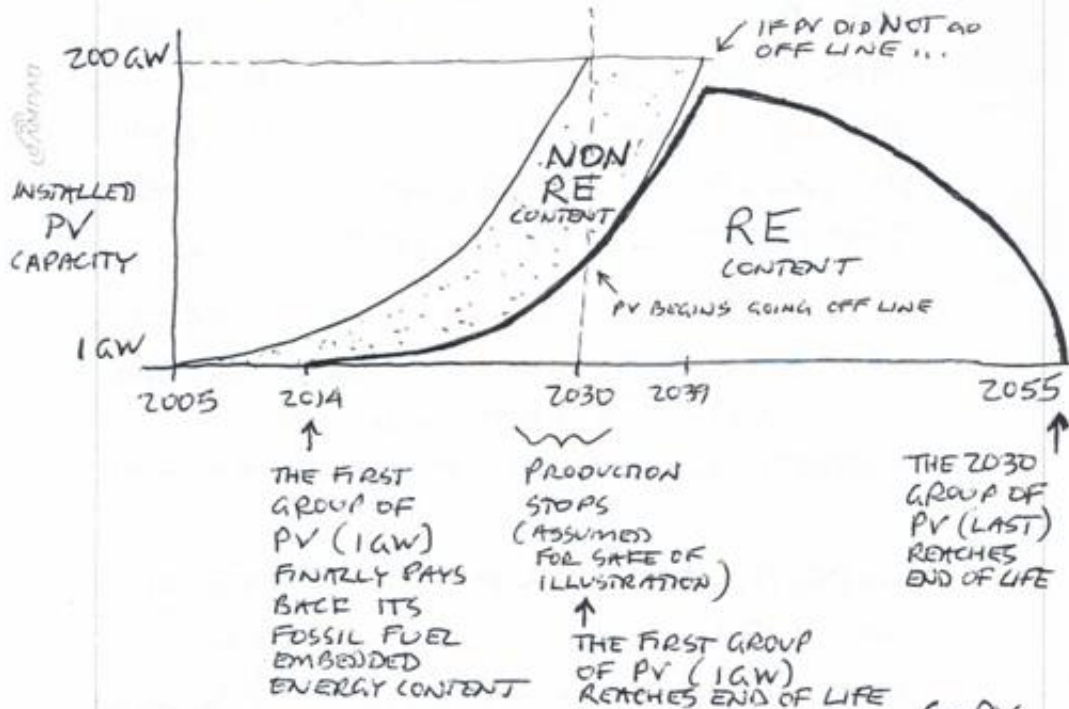 200 GW
IF PV DID NOT GO
OFF LINE ...
INSTALLED
PV
CAPACITY
NON
RE
CONTENT
RE
CONTENT
PV BEGINS GOING OFF LINE
1 GW
2005
2014
2030
2039
2055
THE FIRST
GROUP OF
PV (1GW)
FINALLY PAYS
BACK ITS
FOSSIL FUEL
EMBEDDED
ENERGY CONTENT
PRODUCTION
STOPS
(ASSUMED
FOR SAKE OF
ILLUSTRATION)
THE FIRST GROUP
OF PV (1GW)
REACHES END OF LIFE
THE 2030
GROUP OF
PV (LAST)
REACHES
END OF LIFE